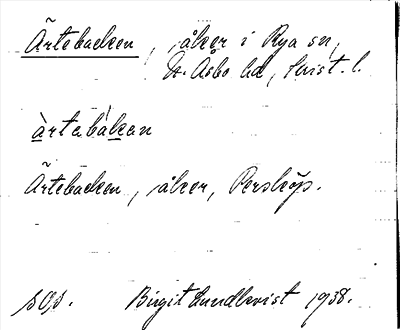 Ärtebacken, åker i Rya sn,
N. Åsbo hd, Krist. l.
àrtabákan
Ärtebacken, åker, Perskӧp.
sOs. Birgit Lundkvist 1938.